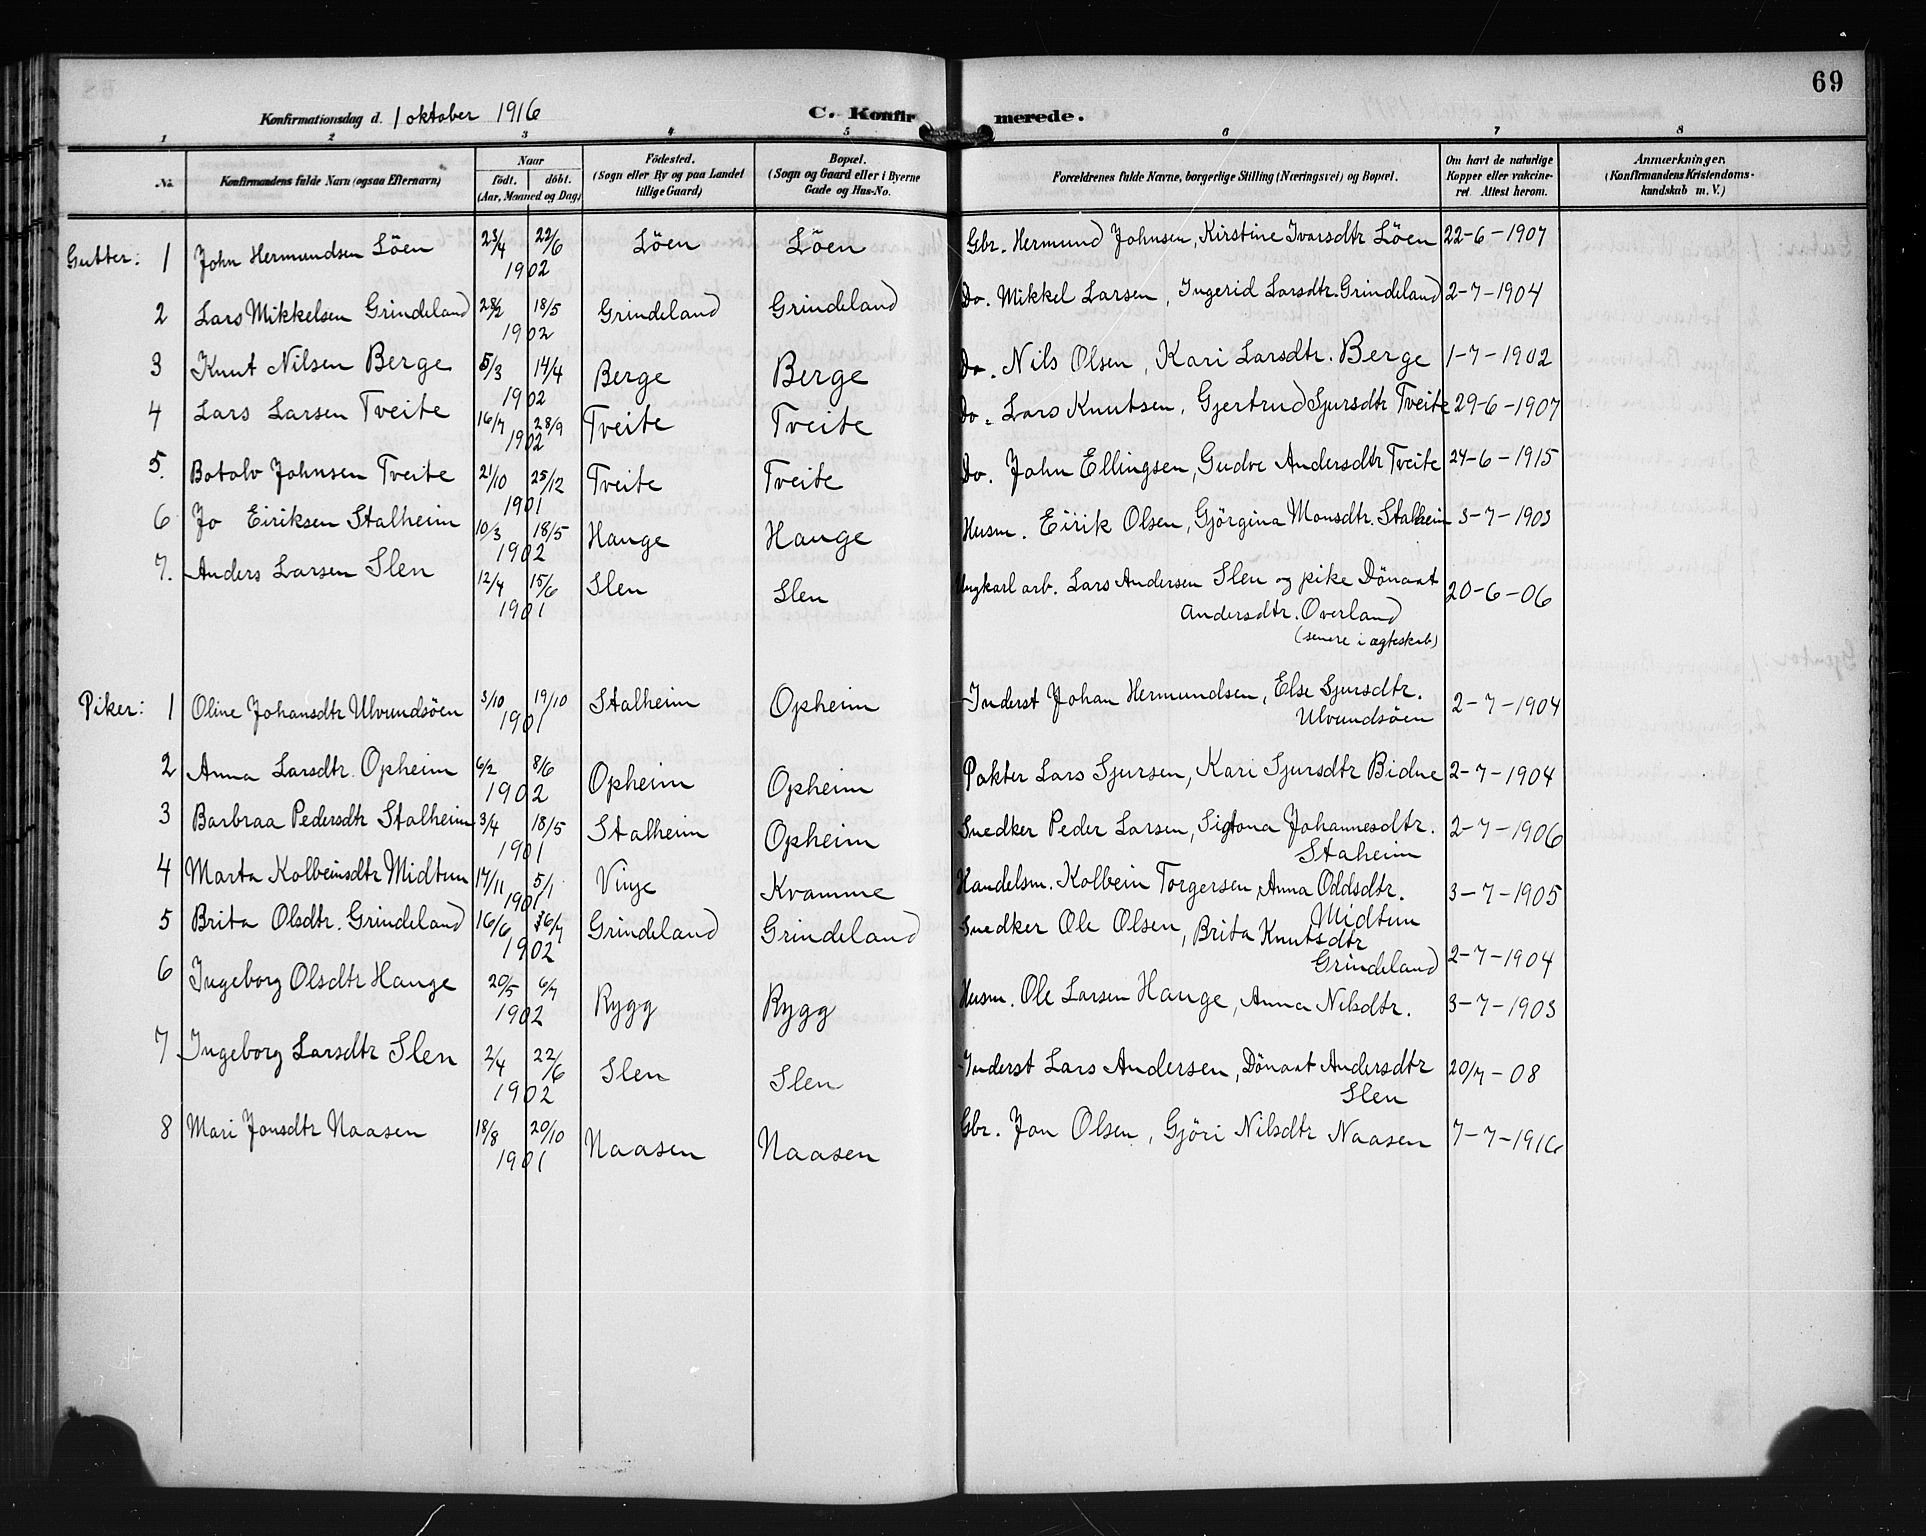 69
Konfirmationsdag d. 1 oktober 1916 C. Konfirmerede.
1 2 3 4 5 6 7 8
No. Konfirmandens fulde Navn (ogsaa Efternavn) Naar födt. döbt. (Aar, Maaned og Dag) Födested. (Sogn eller By og paa Landet tillige Gaard) Bopæl. (Sogn og Gaard eller i Byerne Gade og Hus-No. Forældrenes fulde Navne, borgerlige Stilling (Næringsvei) og Bopæl. Om havt de naturlige Kopper eller vakcineret. Attest herom. Anmærkninger. (Konfirmandens Kristendomskundskab m. V.)
Gutter: 1 John Hermundsen Löen 23/4 22/6 1902 Löen Löen Gbr. Hermund Johnsen, Kirstine Ivarsdtr Löen 22-6-1907
2 Lars Mikkelsen Grindeland 28/2 18/5 1902 Grindeland Grindeland Do. Mikkel Larsen, Ingerid Larsdtr. Grindeland 2-7-1904
3 Knut Nilsen Berge 5/3 14/4 1902 Berge Berge Do. Nils Olsen, Kari Larsdtr. Berge 1-7-1902
4 Lars Larsen Tveite 16/7 28/9 1902 Tveite Tveite Do. Lars Knutsen, Gjertrud Sjursdtr Tveite 29-6-1907
5. Botolv Johnsen Tveite 21/10 25/12 1901 Tveite Tveite Do. John Ellingsen, Gudve Andersdtr Tveite 24-6-1915
6 Jo Eiriksen Stalheim 10/3 18/5 1902 Hauge Hauge Husm. Eirik Olsen, Gjörgina Monsdtr. Stalheim 3-7-1903
7. Anders Larsen Slen 12/4 15/6 1901 Slen Slen Ungkarl arb. Lars Andersen Slen og pike Dönaat 20-6-06
Andersdtr. Overland
(senere i ægteskab)
Piker: 1 Oline Johansdtr Ulvundsöen 3/10 19/10 1901 Stalheim Opheim Inderst Johan Hermundsen, Else Sjursdtr. 2-7-1904
Ulvundsöen
2 Anna Larsdtr. Opheim 6/2 8/6 1902 Opheim Opheim Pakter Lars Sjursen, Kari Sjursdtr Bidne 2-7-1904
3 Barbraa Pedersdtr Stalheim 3/4 18/5 1901 Stalheim Opheim Snedker Peder Larsen, Johannesdtr. 2-7-1906
Staheim
4 Marta Kolbeinsdtr Midtun 17/11 5/1 1901 Vinje Kvamme Handelsm. Kolbein Torgersen, Anna Oddsdtr. 3-7-1905
Midtun
5 Brita Olsdtr. Grindeland 16/6 1902 Grindeland Grindeland Snedker Ole Olsen, Brita Knutsdtr
Grindeland 2-7-1904
6 Ingeborg Olsdtr Hauge 20/5 6/7 1902 Rygg Rygg Husm. Ole Larsen Hauge, Anna Nilsdtr. 3-7-1903
7 Ingeborg Larsdtr Slen 2/4 22/6 1902 Slen Slen Inderst Lars Andersen, Dönaat Andersdtr 20/7-08
Slen
8 Mari Jonsdtr Naasen 18/8 20/10 1901 Naasen Naasen Gbr. Jon Olsen, Gjöri Nilsdtr Naasen 7-7-1916